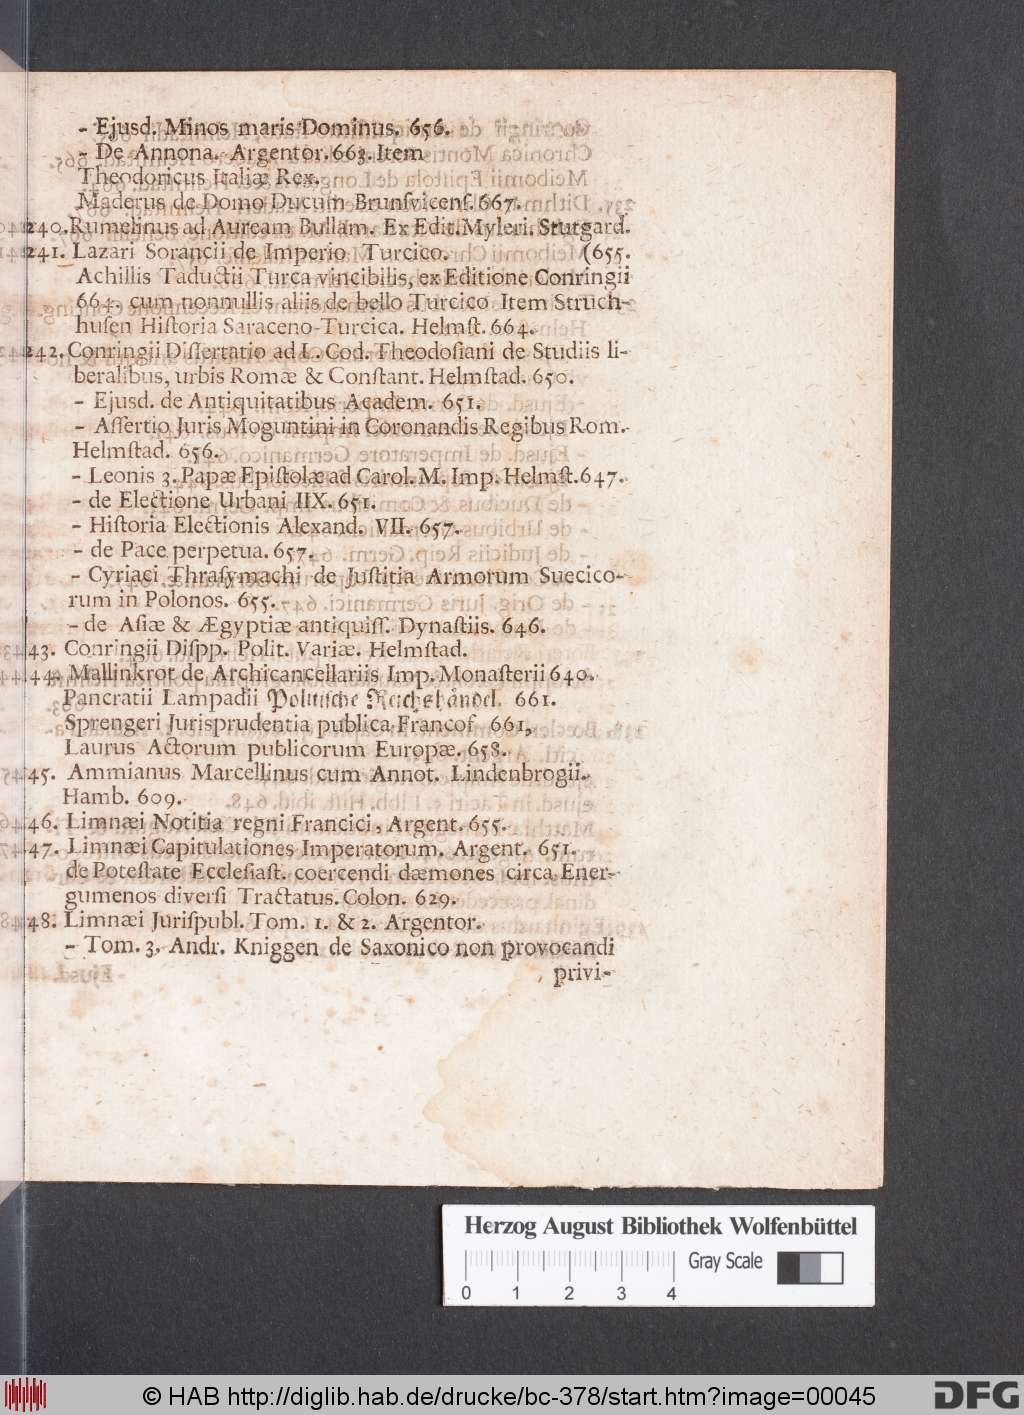 - Ejusd. Minos maris Dominus. 656.
- De Annona. Argentor. 663. Item
Theodoricus Italiæ Rex.
Maderus de Domo Ducum Brunſvicenſ. 667.
240. Rumelinus ad Auream Bullam. Ex Edit. Myleri. Stutgard.
241. Lazari Sorancii de Imperio Turcico. (655.
Achillis Taductii Turca vincibilis, ex Editione Conringii
664. cum nonnullis aliis de bello Turcico Item Struch-
huſen Hiſtoria Saraceno-Turcica. Helmſt. 664.
242. Conringii Diſſertatio ad L. Cod. Theodoſiani de Studiis li-
beralibus, urbis Romæ & Conſtant. Helmſtad. 650.
- Ejusd. de Antiquitatibus Academ. 651.
- Aſſertio Juris Moguntini in Coronandis Regibus Rom.
Helmſtad. 656.
- Leonis 3. Papæ Epiſtolæ ad Carol. M. Imp. Helmſt. 647.
- de Electione Urbani IIX. 651.
- Hiſtoria Electionis Alexand. VII. 657.
- de Pace perpetua. 657.
- Cyriaci Thraſymachi de Juſtitia Armorum Suecico-
rum in Polonos. 655.
- de Aſiæ & Ægyptiæ antiquiſſ. Dynaſtiis. 646.
43. Conringii Diſpp. Polit. Variæ. Helmſtad.
44. Mallinkrot de Archicancellariis Imp. Monaſterii 640.
Pancratii Lampadii Politiſche Reichshändel. 661.
Sprengeri Jurisprudentia publica Francof 661,
Laurus Actorum publicorum Europæ. 658.
45. Ammianus Marcellinus cum Annot. Lindenbrogii.
Hamb. 609.
46. Limnæi Notitia regni Francici, Argent. 655.
47. Limnæi Capitulationes Imperatorum. Argent. 651.
de Poteſtate Eccleſiaſt. coercendi dæmones circa Ener-
gumenos diverſi Tractatus. Colon. 629.
48. Limnæi Juriſpubl. Tom. 1. & 2. Argentor.
- Tom. 3. Andr. Kniggen de Saxonico non provocandi
privi-
Herzog August Bibliothek Wolfenbüttel
Gray Scale
0 1 2 3 4
© HAB http://diglib.hab.de/drucke/bc-378/start.htm?image=00045
DFG